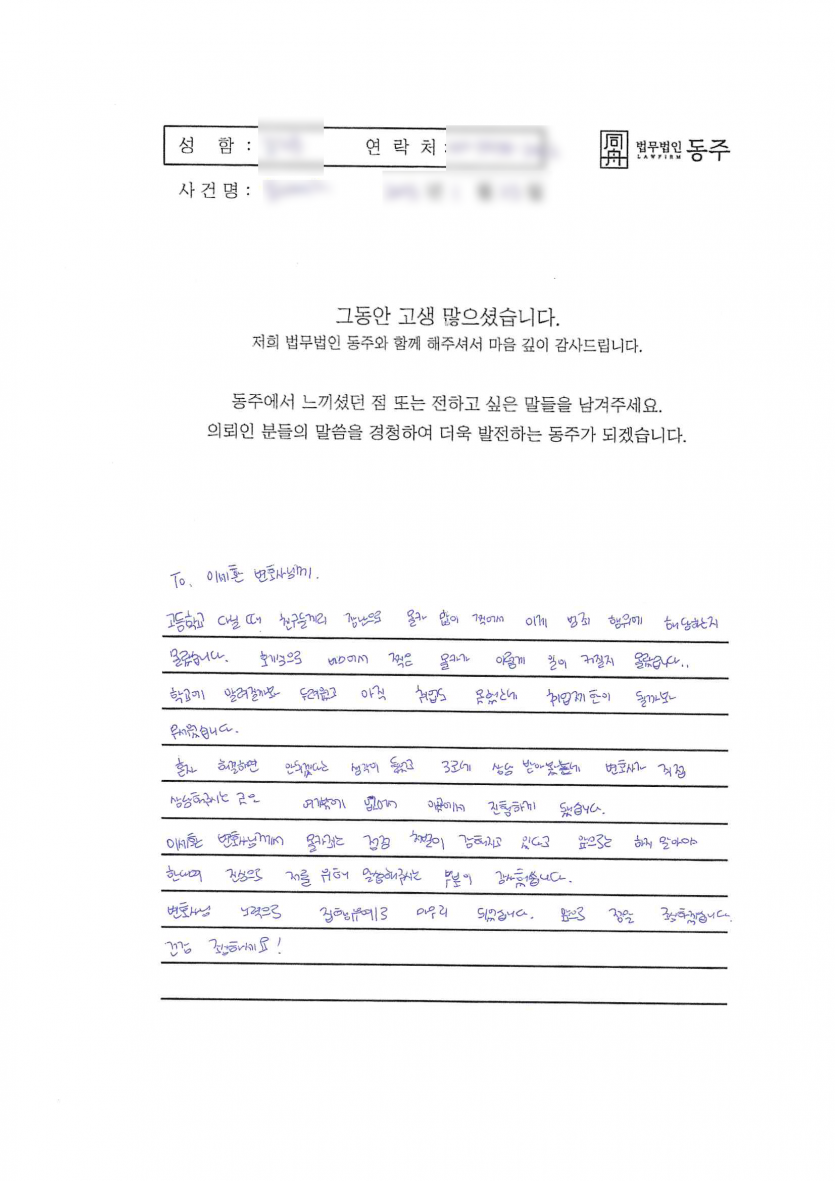 성 함 : 연 락 처 :
同舟 법무법인 동주
LAWFIRM
사건명 :
그동안 고생 많으셨습니다.
저희 법무법인 동주와 함께 해주셔서 마음 깊이 감사드립니다.
동주에서 느끼셨던 점 또는 전하고 싶은 말들을 남겨주세요.
의뢰인 분들의 말씀을 경청하여 더욱 발전하는 동주가 되겠습니다.
To. 이세환 변호사님께.
고등학교 다닐 때 친구들끼리 장난으로 몰카 많이 찍어서 이게 범죄 행위에 해당하는지
몰랐습니다. 호기심으로 에서 찍은 몰카가 이렇게 일이 커질지 몰랐습니다..
학교에 알려질까봐 두려웠고 아직 취업도 못했는데 취업제한이 될까봐
무서웠습니다.
혼자 해결하면 안되겠다는 생각이 들었고 3곳에 상담 받아봤는데 변호사가 직접
상담해주시는 곳은 여기밖에 없어서 이곳에서 진행하게 됐습니다.
이세환 변호사님께서 몰카죄는 점점 처벌이 강해지고 있다고 앞으로는 하지 말아야
한다며 진심으로 저를 위해 말씀해주시는 부분이 감사했습니다.
변호사님 노력으로 집행유예로 마무리 되었습니다. 앞으로 정은 조심하겠습니다.
건강 조심하세요!